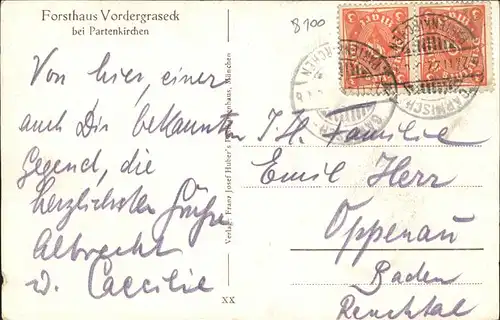 Forsthaus Vordergraseck
bei Partenkirchen
8700
Von hier, einer
auch Dir bekannten
Gegend, die
herzlichsten Grüße
Albrecht
u. Caecilie
Verlag: Franz Josef Huber's München
XX
3 Mark 3
3 Mark 3
GARMISCH
Familie
Emil Herr
Oppenau
Baden
Renchtal